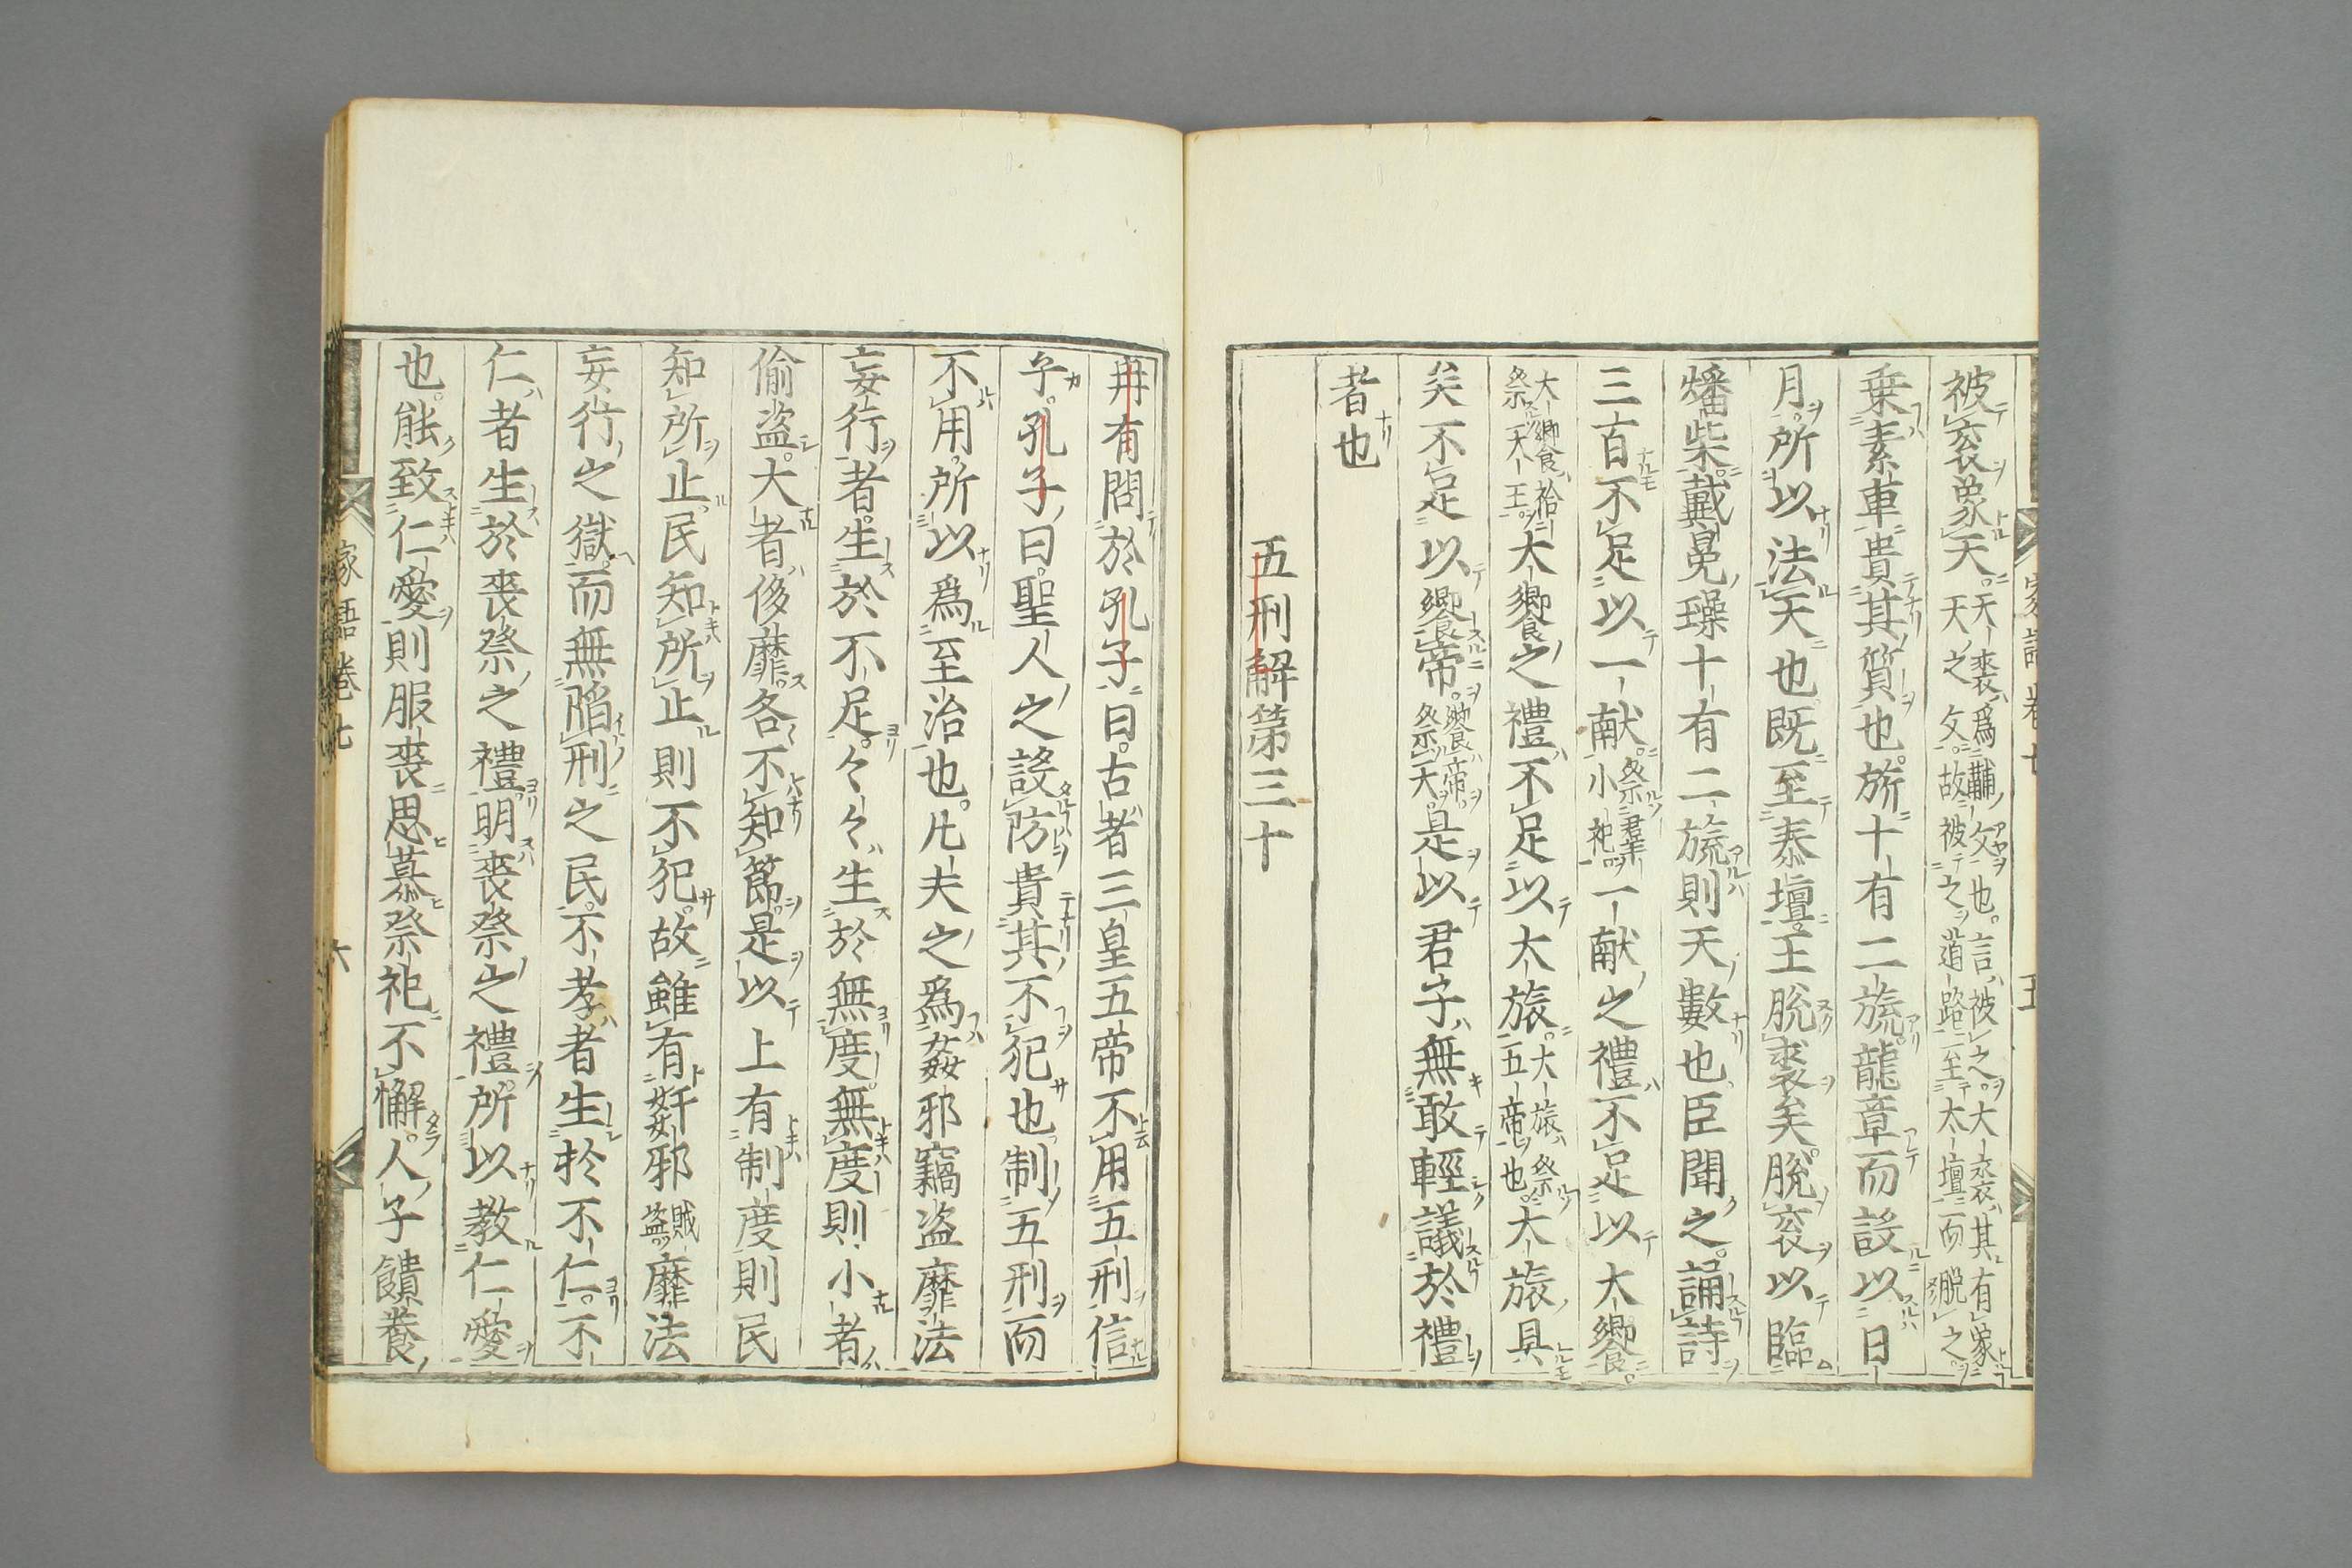 被袞象天天裘爲黼文也言被之大裘其有象天之文故被之道路至太壇而脱之
乗素車貴其質也旂十有二旒龍章而設以日
月所以法天也既至泰壇王脱裘矣脱袞以臨
燔柴戴冕璪十有二旒則天數也臣聞之誦詩
三百不足以一献祭群小祀一献之禮不足以大饗
大饗祫祭天王大饗之禮不足以大旅大旅祭五帝也大旅具
矣不足以饗帝饗帝祭天是以君子無敢輕議於禮
者也
五刑解第三十
冉有問於孔子曰古者三皇五帝不用五刑信
乎孔子曰聖人之設防貴其不犯也制五刑而
不用所以爲至治也凡夫之爲姦邪竊盗靡法
妄行者生於不足々々生於無度無度則小者
偷盗大者侈靡各不知節是以上有制度則民
知所止民知所止則不犯故雖有姦邪賊盗靡法
妄行之獄而無陷刑之民不孝者生於不仁不
仁者生於喪祭之禮明喪祭之禮所以教仁愛
也能致仁愛則服喪思慕祭祀不懈人子饋養
家語卷七
六